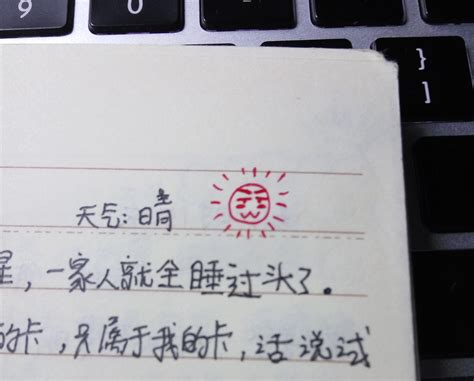 9 0
}
]
天气:晴
星，一家人就全睡过头了。
的卡，只属于我的卡，话说试